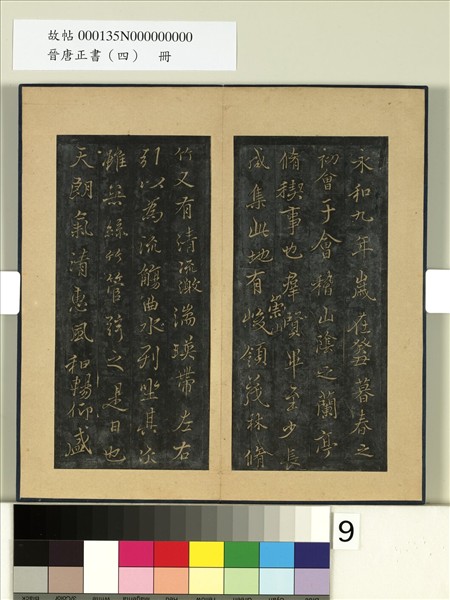 故帖000135N000000000
晉唐正書（四） 冊
永和九年歲在癸丑暮春之
初會于會稽山陰之蘭亭
脩稧事也羣賢畢至少長
咸集此地有崇山峻領茂林脩
竹又有清流激湍暎帶左右
引以為流觴曲水列坐其次
雖無絲竹管弦之是日也
天朗氣清惠風和暢仰盛
9